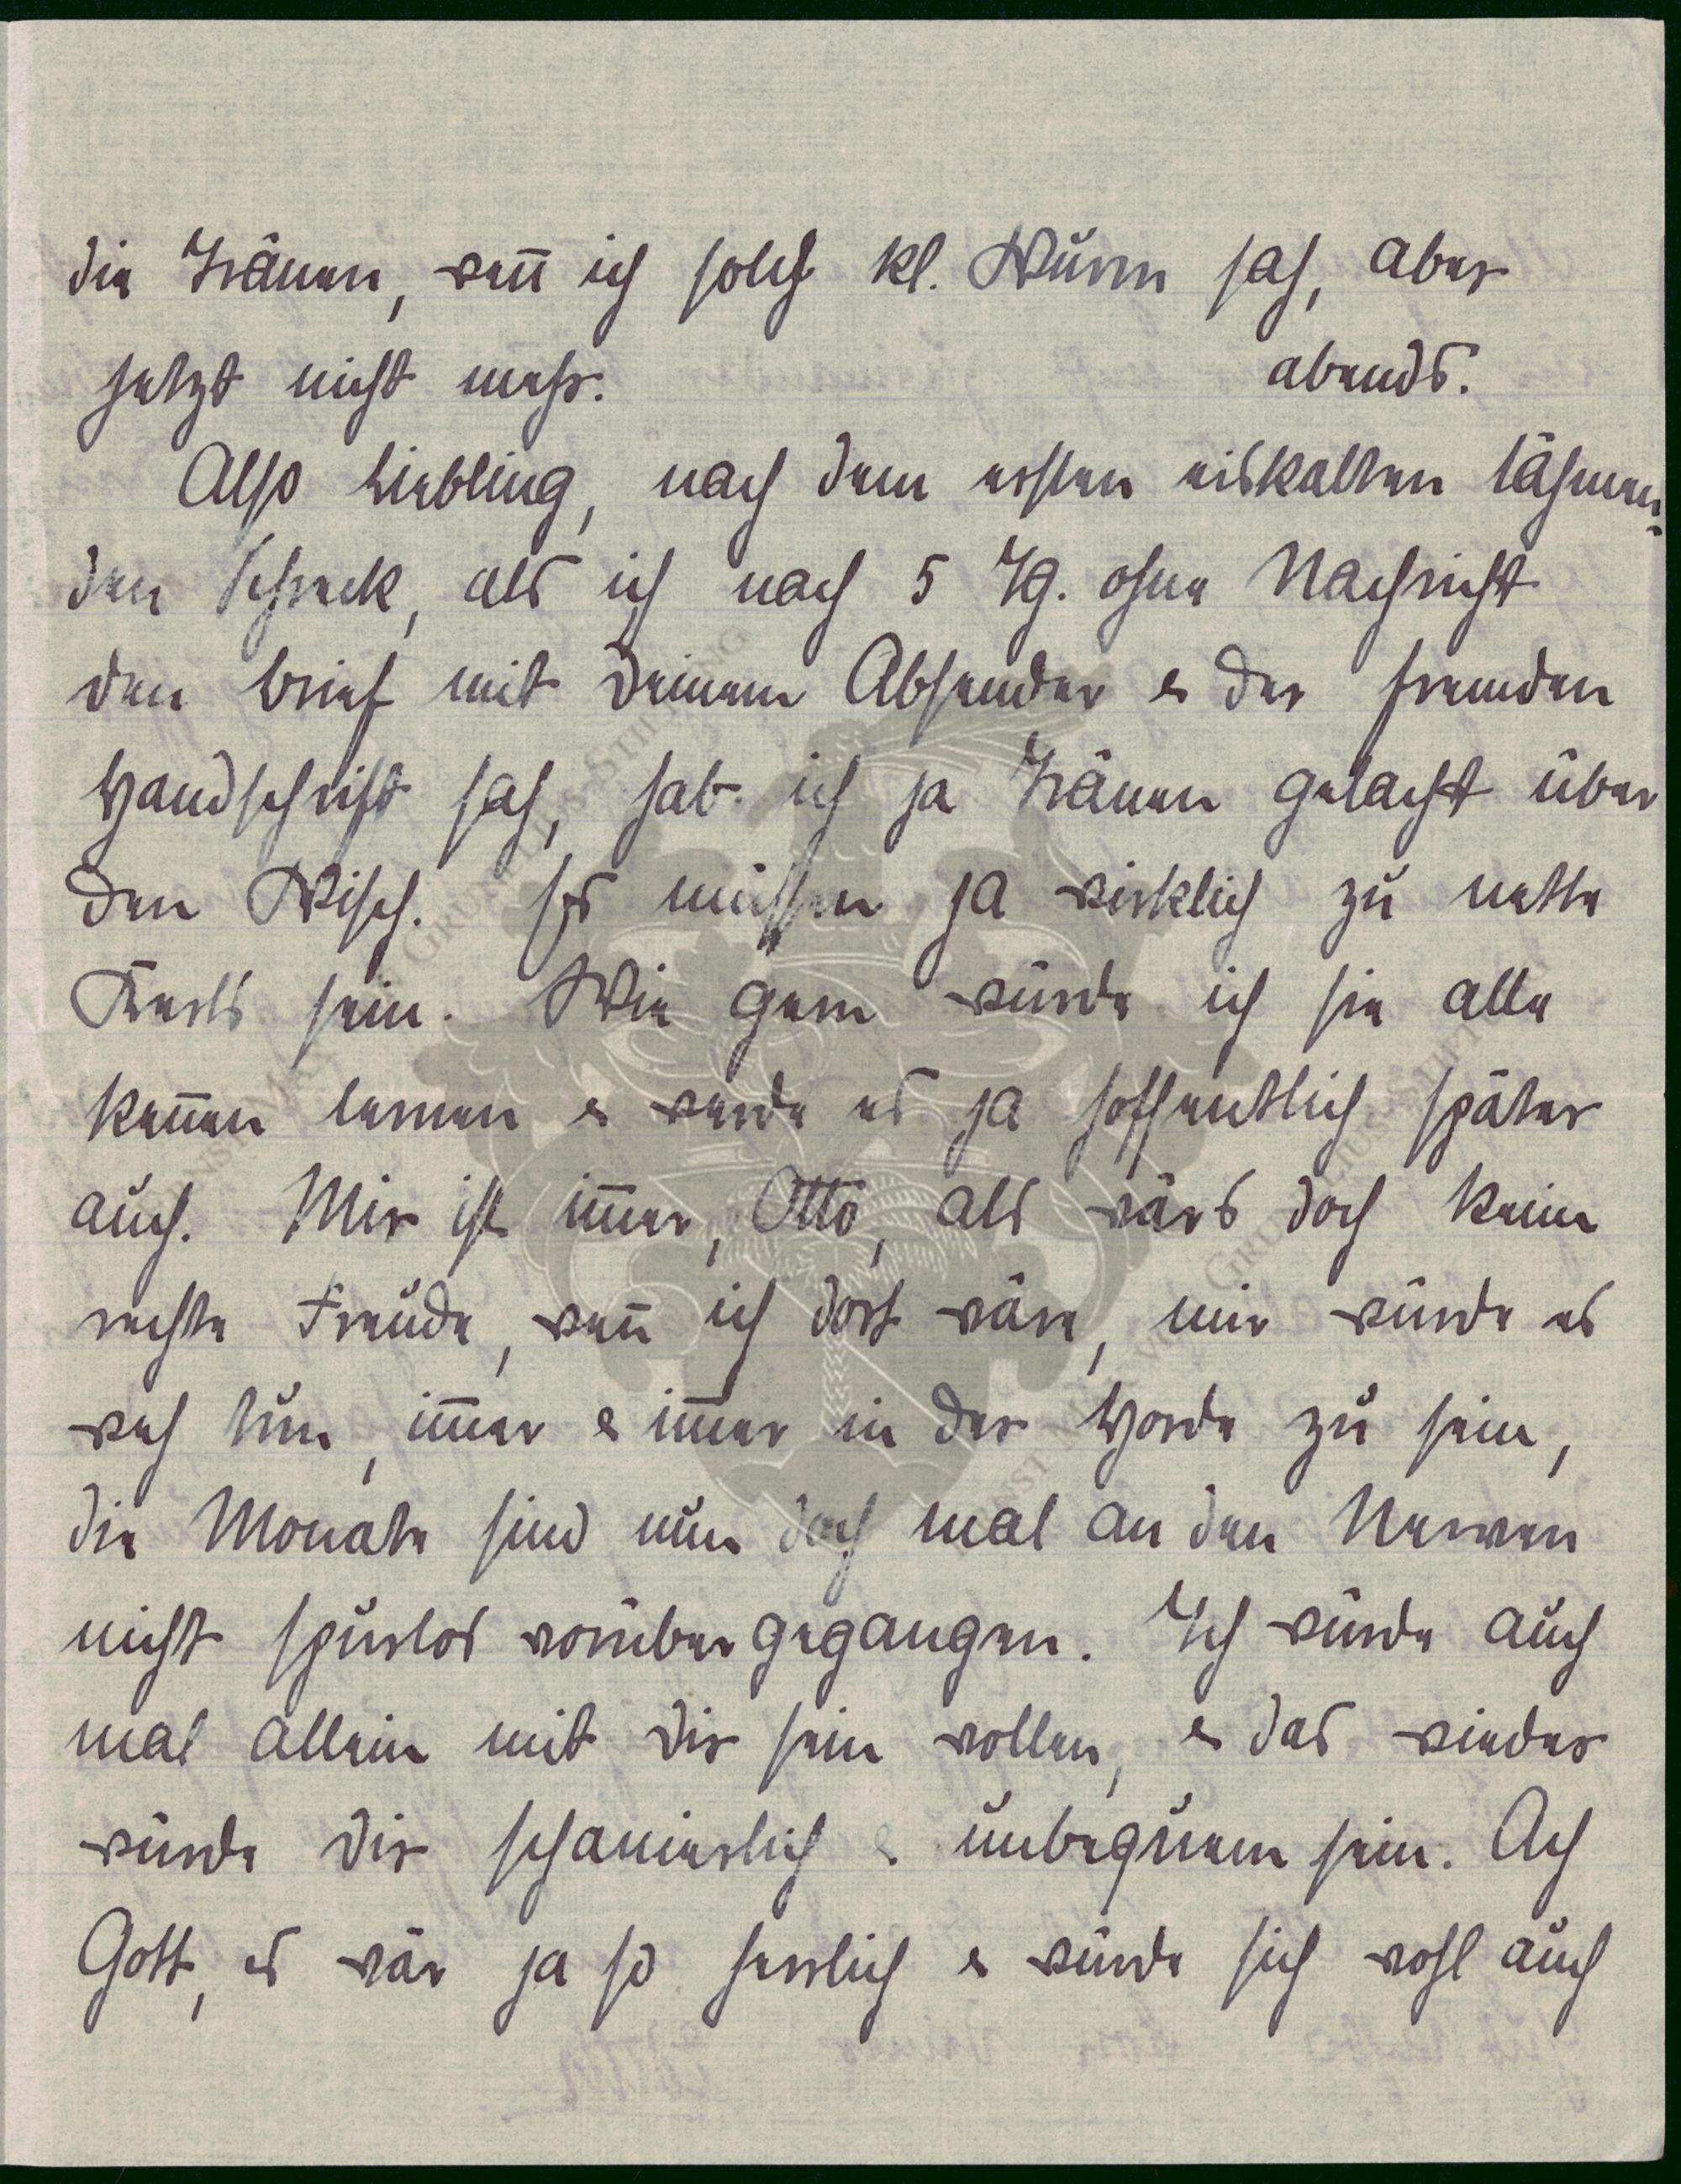 die Tränen, wenn̄ ich solch kl. Wurm sah, aber
jetzt nicht mehr.
abends.
Also Liebling, nach dem ersten eiskalten lähmen-
den Schreck, als ich nach 5 Tg. ohne Nachricht
den Brief mit Deinem Absender & der fremden
Handschrift sah, hab ich ja Tränen gelacht über
den Wisch. Ihr müssen ja wirklich zu nette
Kerls sein. Wie gern würde ich sie alle
ken̄en lernen & werde es ja hoffentlich später
auch. Mir ist im̄er, Otto, als wärs doch keine
rechte Freude, wen̄ ich dort wäre, mir würde es
weh tun, im̄er & im̄er in der Horde zu sein,
die Monate sind nun doch mal an den Nerven
nicht spurlos vorübergegangen. Ich würde auch
mal allein mit Dir sein wollen, & das wieder
würde Dir schanierlich & unbequem sein. Ach
Gott, es wär ja so herrlich & würde sich wohl auch